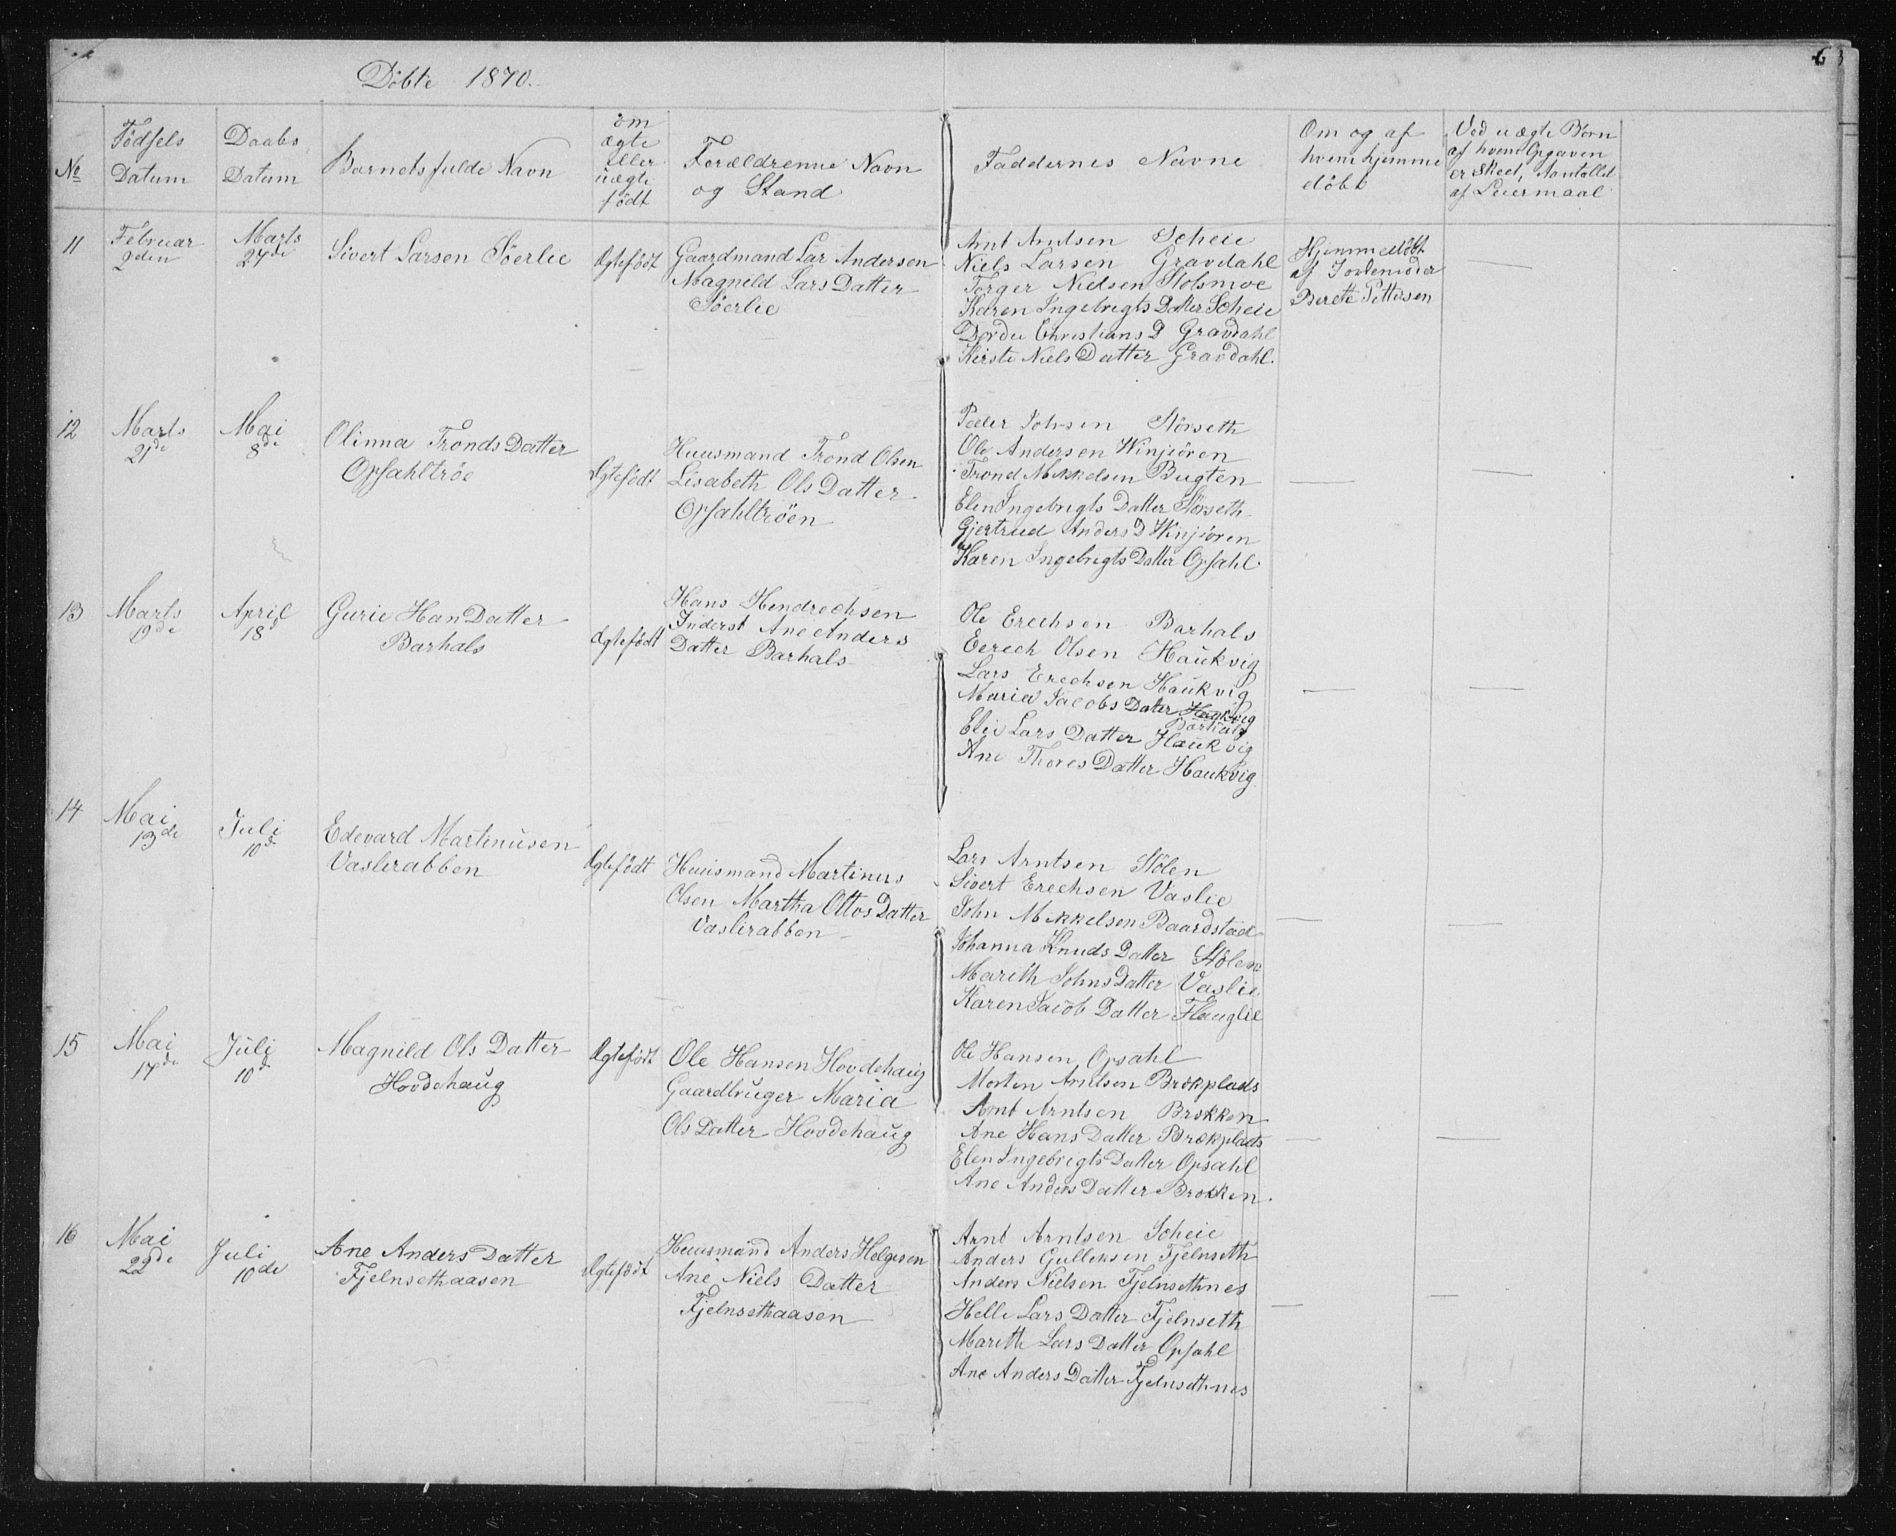 6
Döbte 1870.
No
Födsels Datum
Daabs Datum
Barnets fulde Navn
om ægte eller uægte födt
Forældrenne Navn og Stand
Faddernes Navne
Om og af hvem hjemme döbt
Ved uægte Börn af hvem Opgaven er Skeet, Aantallet af Leiermaal
11
Februar 9den
Marts 27de
Sivert Larsen Söerlie
Ægtefödt
Gaardmand Lar Andersen
Magnild Lars Datter
Söerlie
Arnt Arntsen Scheie
Niels Larsen Gravdahl
Torger Nielsen Stolsmoe
Karen Ingebrigts Datter Scheie
Dordie Christians D Gravdahl
Kirste Niels Datter Gravdahl.
Hjemmedöbt
af Jordemoder
Berete Pettersen
12
Marts 21de
Mai 8de
Olinna Tronds Datter
Opsahltröe
Ægtefödt
Huusmand Trond Olsen
Lisabeth Ols Datter
Opsahltröen
Peder Johsen Störseth
Ole Andersen Winjiören
Trond Mikkelsen Bugten
Elen Ingebrigts Datter Störseth
Gjertrud Anders D Winjiören
Karen Ingebrigts Datter Opsahl.
13
Marts 19de
April 18
Gurie Han Datter
Barhals
Ægtefödt
Hans Hendrechsen
Inderst Ane Anders
Datter Barhals
Ole Erechsen Barhals
Eerech Olsen Haukvig
Lars Erechsen Haukvig
Maria Jacobs Dater Haukvig
Barhals
Elie Lars Datter Haukvig
Ane Thores Datter Haukvig
14
Mai 13de
Juli 10d
Edevard Martinusen
Vaslirabben
Ægtefödt
Huusmand Martinus
Olsen Martha Ottos Datter
Vaslirabben
Lars Arntsen Stölen
Sivert Erechsen Vaslie
John Mikkelsen Baardstad
Johanna Knuds Datter Stölen
Marith Johns Datter Vaslie
Karen Jacob Datter Hauglie
15
Mai 17de
Juli 10d
Magnild Ols Datter
Hovdehaug
Ægtefödt
Ole Hansen Hovdehaug
Gaardbruger Maria
Ols Datter Hovdehaug
Ole Hansen Opsahl
Morten Arntsen Brækplads
Arnt Arntsen Brokken
Ane Hans Datter Brækplads
Elen Ingebrigts Datter Opsahl
Ane Anders Datter Brokken.
16
Mai 22de
Juli 10de
Ane Anders Datter
Fjelnsethaasen
Ægtefödt
Huusmand Anders Helgesen
Ane Niels Datter
Fjelnsethaasen
Arnt Arntsen Scheie
Anders Gulleksen Fjelnseth
Anders Nielsen Fjelnsethnes
Helle Lars Datter Fjelnseth
Marith Lars Datter Opsahl
Ane Anders Datter Fjelnsethnes